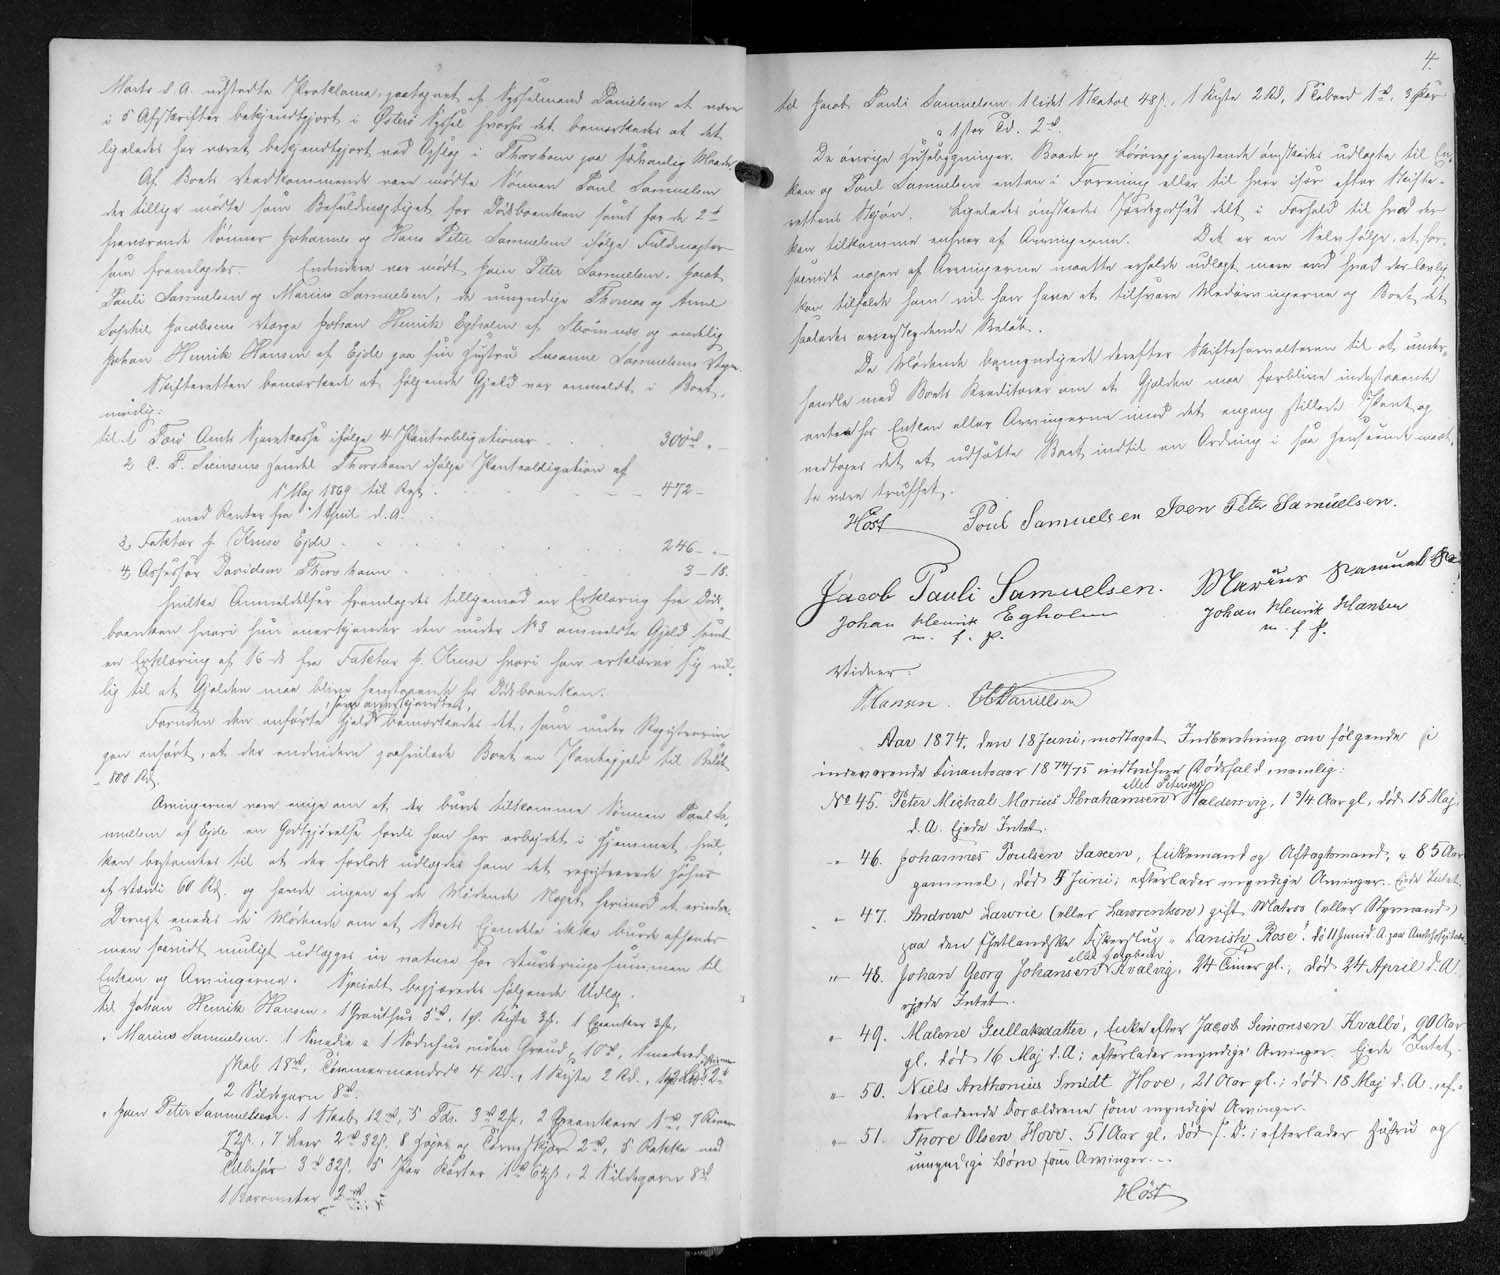 Marts d. A. udstedte Proklama, paategnet af Sysselmand Danielsen at være
i 5 Afskrifter bekjendtgjort i Østerø Syssel hvorhos det bemærkedes at det
ligeledes har været bekjendtgjort ved Opslag i Thorshavn paa sædvanlig Maade.
Af Boets Vedkommende vare mødte Sønnen Poul Samuelsen
der tillige mødte som Befuldmægtiget for Dødboenken samt for de 2de
fraværende Sønner Johannes og Hans Peter Samuelsen ifølge Fuldmagter
som fremlagdes. Endvidere var mødt Joen Peter Samuelsen, Jacob
Pauli Samuelsen og Marius Samuelsen, de umyndige Thomas og Anne
Sophie Jacobsens Værge Johan Henrik Egholm af Strømnæs og endelig
Johan Henrik Hansen af Ejde paa sin Hustru Susanne Samuelsens Vegne.
Skifteretten bemærkede at følgende Gjæld var anmeldt i Boet,
nemlig:
til 1 Færø Amts Sparekasse ifølge 4 Pantobligationer 300 rd " -
2 C. F. Siemsens Handel Thorshavn ifølge Pantobligation af
1 Maj 1869 til Rest 472 -
med Renter fra 1 April d. A.
3 Faktor H. Kruse Ejde 246 - " -
4 Assessor Davidsen Thorshavn 3 - 18.
hvilke Anmeldelser fremlagdes tilligemed en Erklæring fra Død-
boenken hvori hun anerkjender den under No 3 anmeldte Gjæld samt
en Erklæring af 16 ds fra Faktor H. Kruse hvori han erklærer sig vil-
lig til at Gjælden maa blive henstaaende hos Dødboenken.
, som anerkjendtes,
Foruden den anførte Gjæld bemærkedes det, som under Registrerin
gen anført, at der endvidere paahvilede Boet en Pantegjæld til Beløb
800 Rd.
Arvingerne vare enige om at der burde tilkomme Sønnen Poul Sa-
muelsen af Ejde en Godtgjørelse fordi han har arbejdet i Hjemmet, hvil-
ken bestemtes til at der forlods udlægges ham det registrerede
af Værdi 60 Rd. og havde ingen af de Mødende Noget herimod at erindre.
Dernæst enedes de Mødende om at Boets Ejendele ikke burde afhændes
men saavidt muligt udlægges in natura for Vurderingssummen til
Enken og Arvingerne. Specielt begjæredes følgende Udlæg.
til Johan Henrik Hansen, 1 Grauthus, 5 rd, 1 gl. Kiste 3 ß, 1 Granker 3 ß,
" Marius Samuelsen. 1 Smedie a 1 Nødehus uden Grund, 10 rd, 1
Skab 18 rd, Tømmermands 4 Rd., 1 Kiste 2 Rd,
2 Sildegarn 8 rd.
" Joen Peter Samuelsen. 1 Skab 12 rd, 5 Fds. 3 rd 2 ß, 2 1 rd, 7
72 ß, 7 2 rd 32 ß. 8 og 2 rd, 5 Rakke med
Tilbehør 3 rd 32 ß. 5 Par Karter 1 rd 64 ß, 2 Sildegarn 8 rd
1 Barometer 2 rd.
4.
til Jacob Pauli Samuelsen 1 lidet Skatol 48 ß, 1 Kiste 2 Rd, 1 1 rd, 3 Faar
" 1 stor Td. 2 rd.
De øvrige Husebygninger, Baade og Løsøregjenstande ønskedes udlagte til En-
ken og Poul Samuelsen enten i Forening eller til hver især efter Skifte-
rettens Skjøn. Ligeledes ønskedes Jordegodset delt i Forhold til hvad der
kan tilkomme enhver af Arvingerne. Det er en Selvfølge, at for-
saavidt nogen af Arvingerne maatte erholde udlagt mere end hvad der lovlig
kan tilfalde ham vil han have at tilsvare Medarvingerne og Boet det
saaledes overskydende Beløb.
De Mødende bemyndigede derefter Skifteforvalteren til at under-
handle med Boets Kreditorer om at Gjælden maa forblive indestaaende
enten hos Enken eller Arvingerne imod det engang stillede Pant og
vedtoges det at udsætte Boet indtil en Ordning i saa Henseende maat-
te være truffet.
Høst Poul Samuelsen Joen Peter Samuelsen.
Jacob Pauli Samuelsen. Marius Samuelsen
Johan Henrik Egholm Johan Henrik Hansen
m. f. P. m. f. P.
Vidner:
Hansen. Danielsen
Aar 1874, den 18 Juni, modtaget Indberetning om følgende i
indeværende Finantsaar 1874/75 indtrufne Dødsfald, nemlig:
eller Petersen
No 45. Peter Michal Marius Abrahamsen Haldersvig, 1 3/4 Aar gl, død 15 Maj
d. A. Ejede Intet.
" 46. Johannes Poulsen Saxen, Enkemand og Aftægtsmand, " 85 Aar
gammel, død 4 Juni; efterlader myndige Arvinger. Ejede Intet.
" 47. Andrew Lawrie (eller Lawrentson) gift Matros (eller Styrmand)
paa den shetlandske Fiskerslup "Danish Rose". d: 11 Juni d. A. paa Amtshospitalet
eller Joensen
" 48. Johan Georg Johansen Kvalvig, 24 Timer gl., død 24 April d. A.
ejede Intet.
" 49. Malene Gullaksdatter, Enke efter Jacob Simonsen Kvalbø, 90 Aar
gl. død 16 Maj d. A; efterlader myndige Arvinger. Ejede Intet.
" 50. Niels Anthonius Smidt Hove, 21 Aar gl.; død 18 Maj d. A., ef-
terladende Forældrene som myndige Arvinger.
" 51. Thore Olsen Hove. 51 Aar gl, død s. D.; efterlader Hustru og
umyndige Børn som Arvinger.
Høst